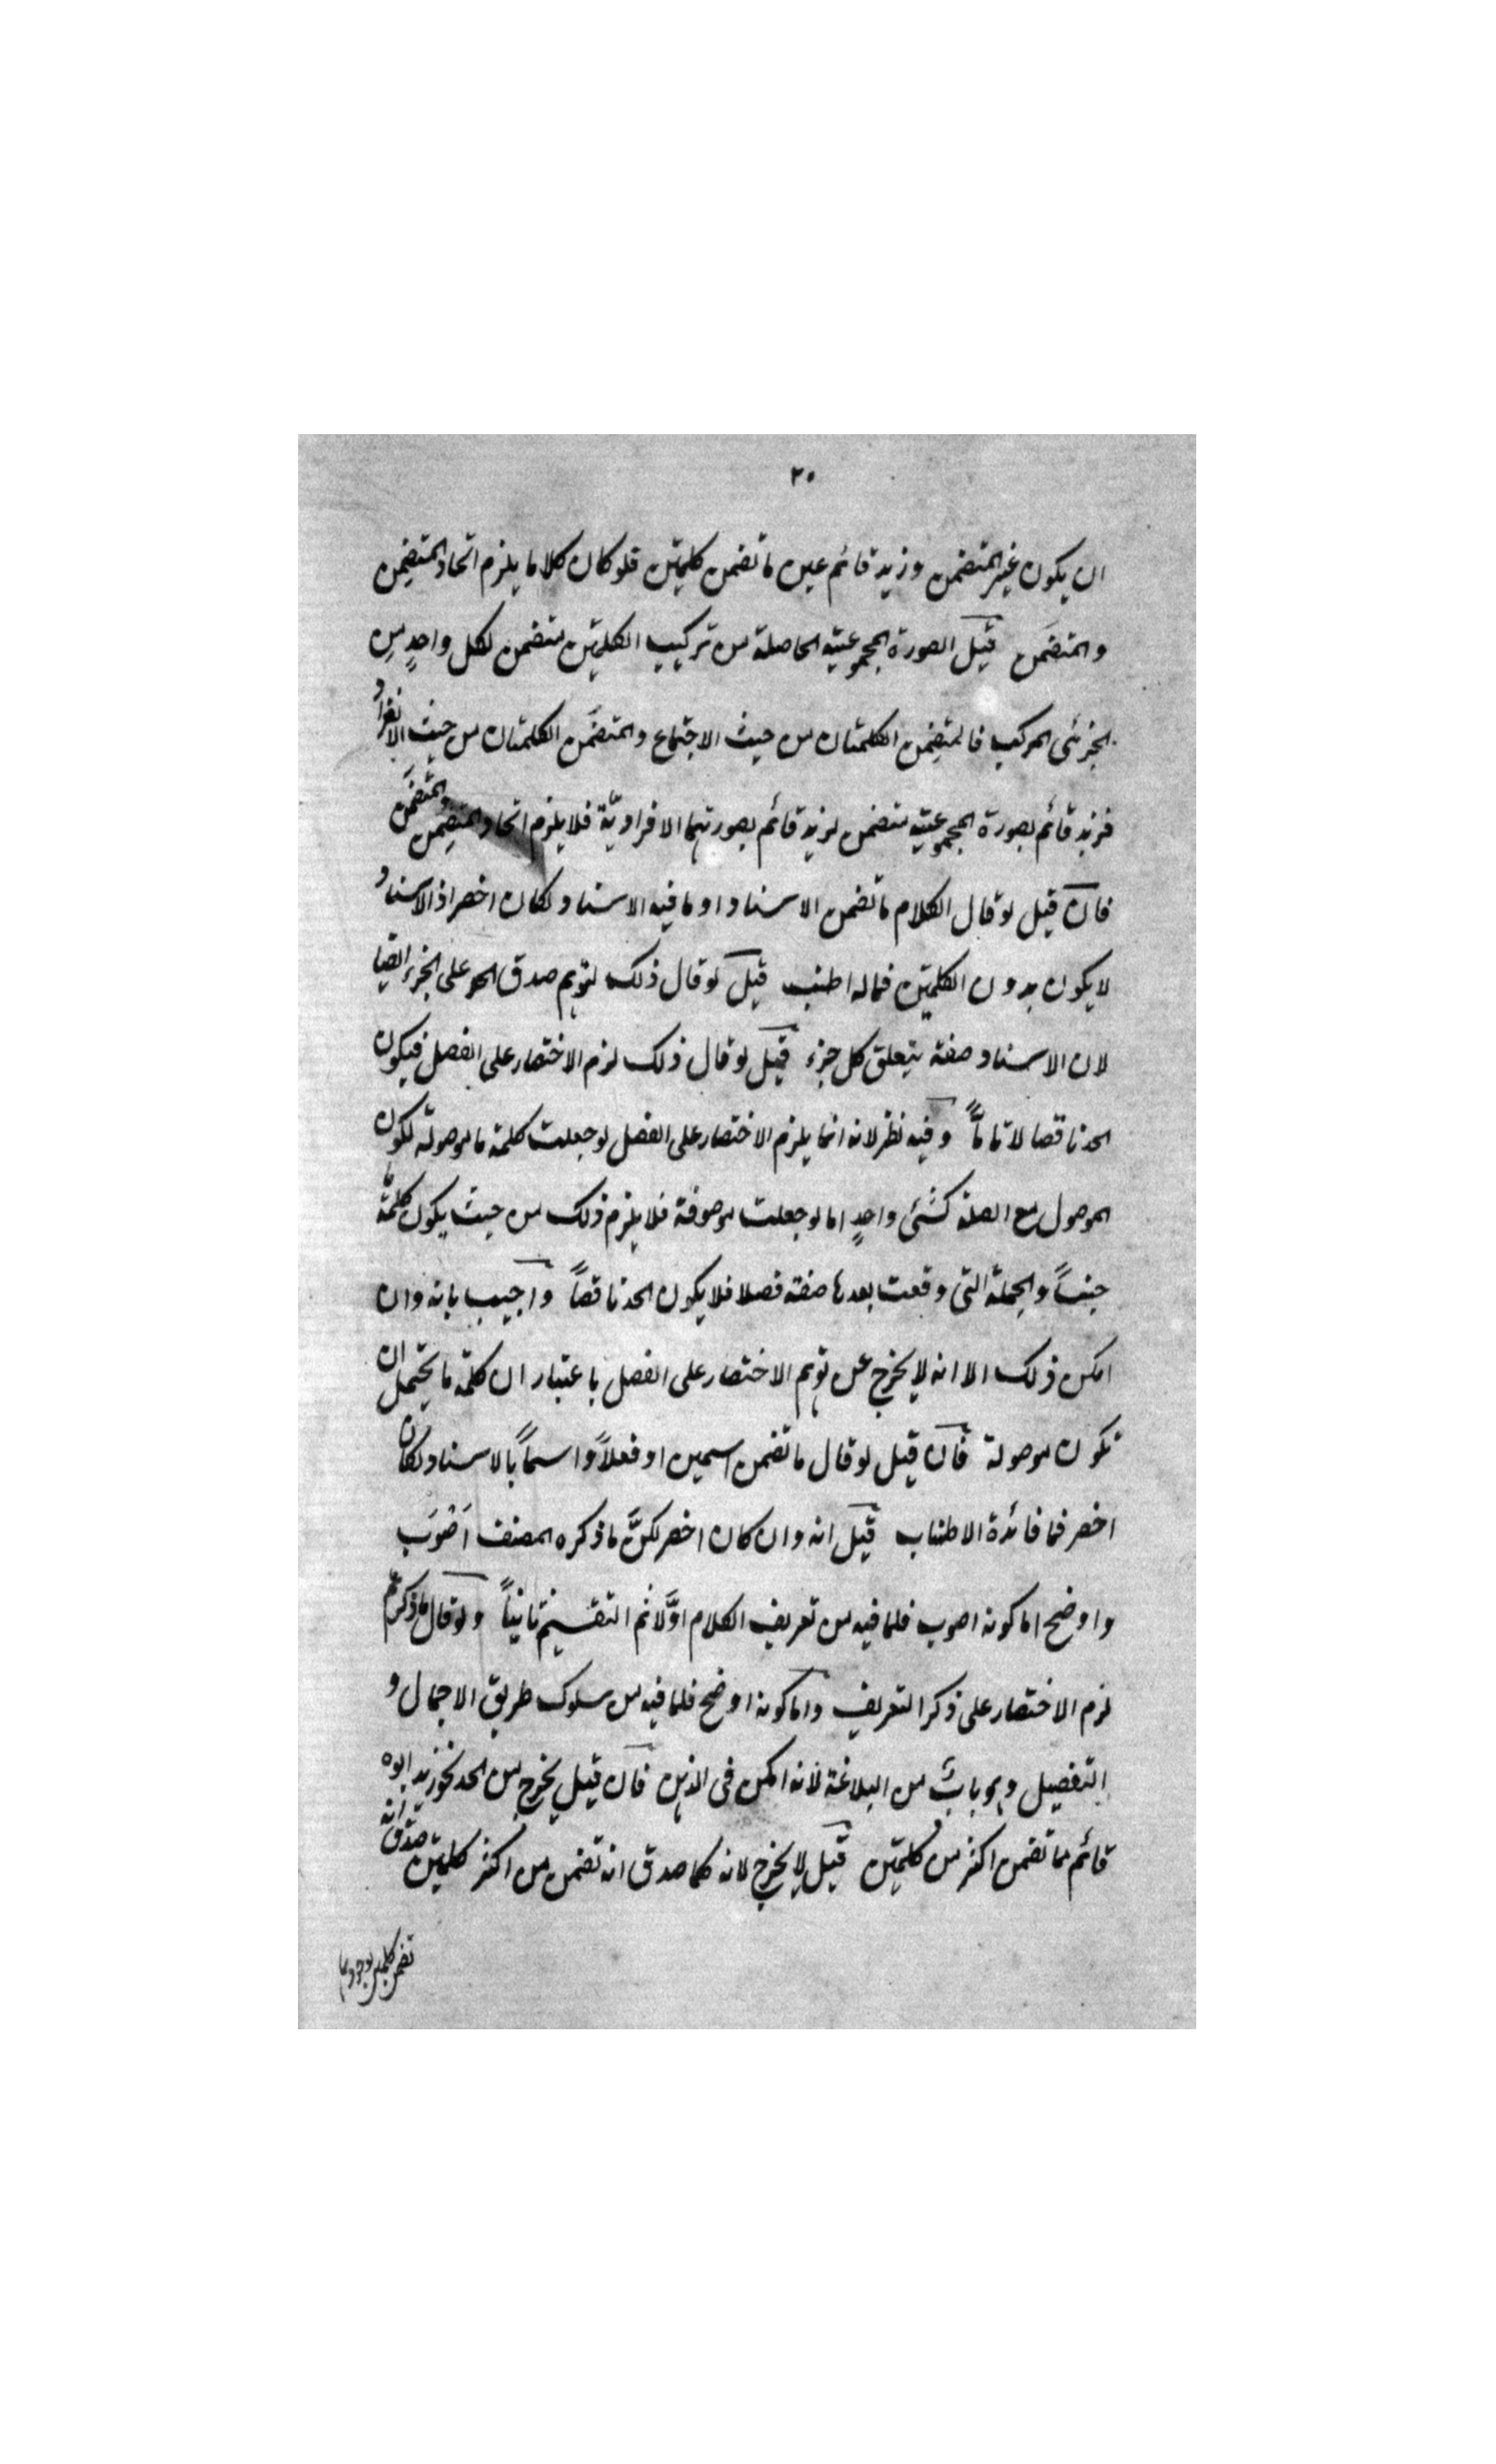 ٣٠
ان يكون غير المتضمن وزيد قائم عين ما تضمن كلمتين فلو كان كلاما يلزم اتحاد المتضمِن
والمتضمَن قيل الصورة المجموعية الحاصلة من تركيب الكلمتين متضمن لكل واحدٍ من
الجزئى المركب فالمتضمِن الكلمتان من حيث الاجتماع والمتضمَن الكلمتان من حيث الانفراد
فزيد قائم بصورة المجموعية متضمن لزيد قائم بصورتهما الافراديّة فلا يلزم اتحاد المتضمِن والمتضمَن
فان قيل لو قال الكلام ما تضمن الاسناد او ما فيه الاسناد لكان اخصر اذ الاسناد
لا يكون بدون الكلمتين فماله اطنب قيل لو قال ذلك لتوهم صدق الحد على الجزء ايضا
لان الاسناد صفة يتعلق كل جزء قيل لو قال ذلك لزم الاختصار على الفصل فيكون
الحد ناقصا لا تاماًّ وفيه نظر لانه انما يلزم الاختصار على الفصل لو جعلت كلمة ما موصولة لكون
الموصول مع الصلة كشئ واحدٍ اما لو جعلت موصوفة فلا يلزم ذلك من حيث يكون كلمة ما
جنساً والجملة التى وقعت بعدها صفة فصلا فلا يكون الحد ناقصاً واجيب بانه وان
امكن ذلك الا انه لا يخرج عن توهم الاختصار على الفصل باعتبار ان كلمة ما يحتمل ان
تكون موصولة فان قيل لو قال ما تضمن اسمين او فعلاً واسماً بالاسناد لكان
اخصر فما فائدة الاطناب قيل انه وان كان اخصر لكنَّ ما ذكره المصنف اَصْوَب
واوضح اما كونه اصوب فلما فيه من تعريف الكلام اوَّلا ثم التقسيم ثانياً ولو قال ما ذكرتم
لزم الاختصار على ذكر التعريف واما كونه اوضح فلما فيه من سلوك طريق الاجمال و
التفصيل وهو بابٌ من البلاغة لانه امكن فى الذهن فان قيل يخرج من الحد نحو زيد ابوه
قائم مما تضمن اكثر من كلمتين قيل لا يخرج لانه كما صدق انه تضمن من اكثر كلمتين صدق انه
تضمن كلمتين